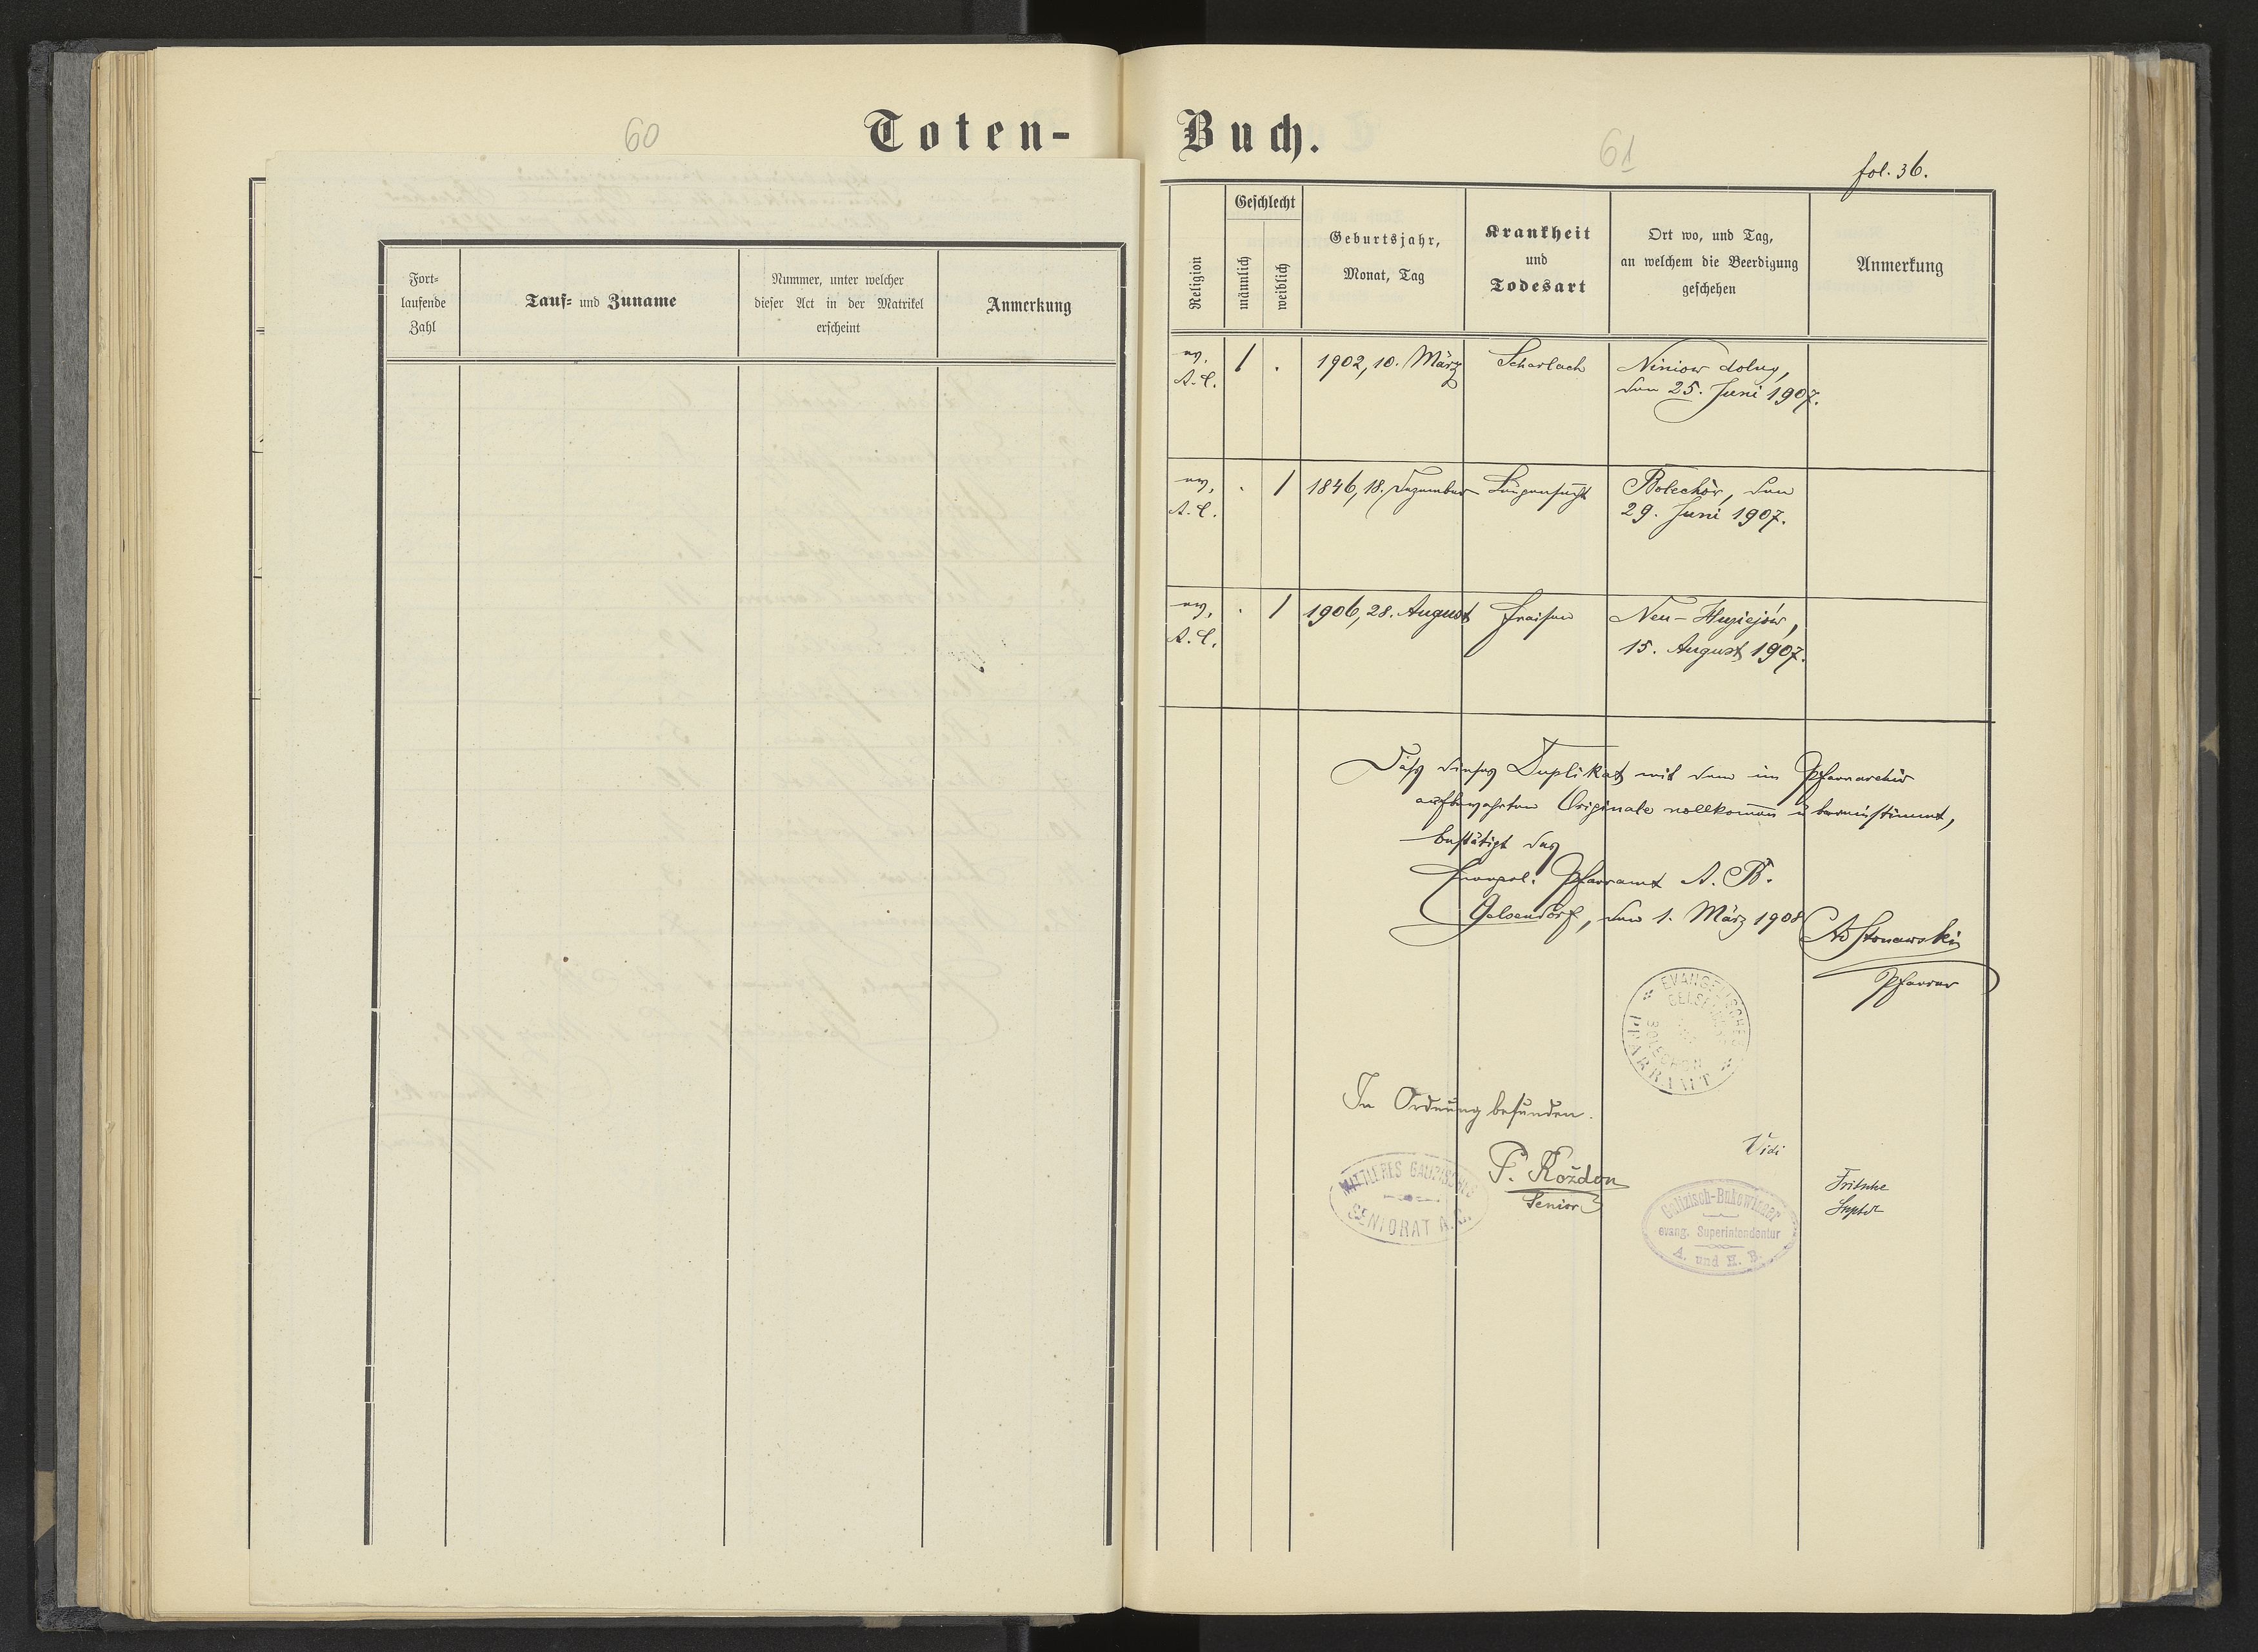 60
Toten-
Fort-
laufende
Zahl
Tauf- und Zuname
Nummer, unter welcher
dieser Act in der Matrikel
erscheint
Anmerkung
Buch.
61
fol. 36.
Religion
Geschlecht
männlich
weiblich
Geburtsjahr,
Monat, Tag
Krankheit
und
Todesart
Ort wo, und Tag,
an welchem die Beerdigung
geschehen
Anmerkung
ev. 1 . 1902, 10. März Scharlach Niniow dolny,
A. C. den 25. Juni 1907.
ev. . 1 1846, 18. Dezember Lungensucht Bolechów, den
A. C. 29. Juni 1907.
ev. . 1 1906, 28. August Fraisen Neu-Huziejów,
A. C. 15. August 1907.
Daß dieses Duplikat mit dem im Pfarrarchiv
aufbewahrten Originale vollkomen übereinstimmt,
bestätigt das
Evangel. Pfarramt A. B.
Gelsendorf, den 1. März 1908
Stonawski
Pfarrer
EVANGELISCHES
GELSENDORF
BOLECHOW
PFARRAMT
In Ordnung befunden.
MITTLERES GALIZISCHES
SENIORAT A. C.
P. Rożdon
Senior
Vidi
Galizisch-Bukowinaer
evang. Superintendentur
A. und H. B.
Fritsche
Suptdt